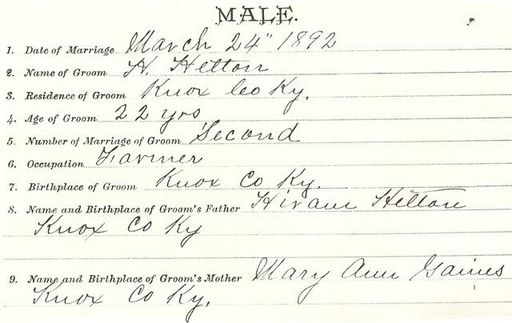 MALE.
1. Date of Marriage March 24" 1892
2. Name of Groom H. Hilton
3. Residence of Groom Knox Co Ky.
4. Age of Groom 22 yrs
5. Number of Marriage of Groom Second
6. Occupation Farmer
7. Birthplace of Groom Knox Co Ky.
8. Name and Birthplace of Groom's Father Hiram Hilton
Knox Co Ky
9. Name and Birthplace of Groom's Mother Mary Ann Gaines
Knox Co Ky.